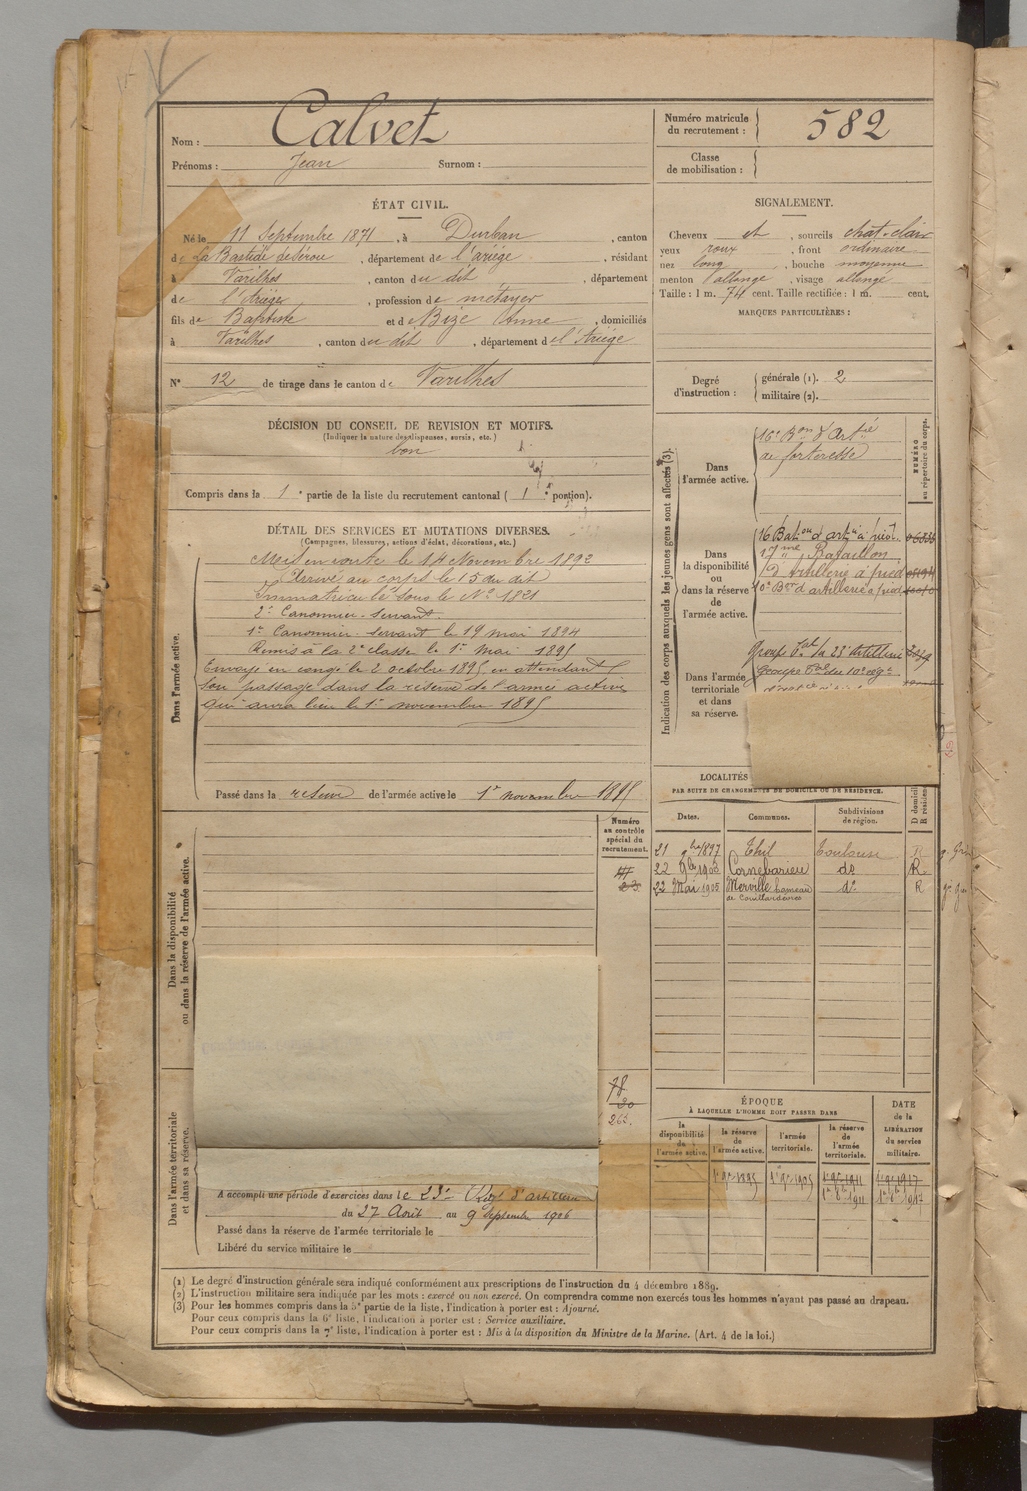 Nom : Calvet
Prénoms : Jean Surnom :
Numéro matricule du recrutement : 582
Classe de mobilisation :
ÉTAT CIVIL.
Né le 11 Septembre 1871, à Durban, canton
de La Bastide de Sérou, département de l'ariège, résidant
à Varilhes, canton du dit, département
de l'Ariège, profession de métayer
fils de Baptiste et d Bize Anne, domiciliés
à Varilhes, canton du dit, département de l'Ariège
N° 12 de tirage dans le canton de Varilhes
SIGNALEMENT.
Cheveux et, sourcils chat. clair
yeux roux, front ordinaire
nez long, bouche moyenne
menton allongé, visage allongé
Taille : 1 m. 74 cent. Taille rectifiée : 1 m. cent.
MARQUES PARTICULIÈRES :
Degré d'instruction : générale (1). 2
militaire (2).
DÉCISION DU CONSEIL DE REVISION ET MOTIFS.
(Indiquer la nature des dispenses, sursis, etc.)
bon
Compris dans la 1e partie de la liste du recrutement cantonal (1e portion).
DÉTAIL DES SERVICES ET MUTATIONS DIVERSES.
(Campagnes, blessures, actions d'éclat, décorations, etc.)
Dans l'armée active.
Mis en route le 14 Novembre 1892
Arrivé au corps le 15 du dit
Immatriculé sous le No 1821
2e Canonnier-servant.
1er Canonnier-servant le 19 mai 1894
Remis à la 2e classe le 1er mai 1895
Envoyé en congé le 2 octobre 1895 en attendant
son passage dans la réserve de l'armée active
qui aura lieu le 1er novembre 1895
Passé dans la réserve de l'armée active le 1er novembre 1895
Indication des corps auxquels les jeunes gens sont affectés (3).
NUMÉRO au répertoire du corps.
Dans l'armée active.
16e Bon d'Artie
de forteresse
Dans la disponibilité ou dans la réserve de l'armée active.
16 Baton d'artie à pied
17me Bataillon
d'Artillerie à pied
10e Bon d'artillerie à pied
Dans l'armée territoriale et dans sa réserve.
Groupe tal du 23e Artillerie
Groupe Tal du 10e rég
LOCALITÉS
PAR SUITE DE CHANGEMENTS DE DOMICILE OU DE RÉSIDENCE.
Dates. Communes. Subdivisions de région. D domicile R résidence
21 9bre 1897 Thil Toulouse R
22 9bre 1902 Cornebarieu do R
22 Mai 1905 Merville hameau do R
Numéro au contrôle spécial du recrutement.
Dans la disponibilité ou dans la réserve de l'armée active.
78
263.
Dans l'armée territoriale et dans sa réserve.
A accompli une période d'exercices dans le 23e Rég. d'artillerie
du 27 Août au 9 Septembre 1906
Passé dans la réserve de l'armée territoriale le
Libéré du service militaire le
ÉPOQUE
À LAQUELLE L'HOMME DOIT PASSER DANS
la disponibilité de l'armée active. la réserve de l'armée active. l'armée territoriale. la réserve de l'armée territoriale.
DATE de la LIBÉRATION du service militaire.
1er 9bre 1895 1er 9bre 1905 1er 9bre 1911 1er 9bre 1917
(1) Le degré d'instruction générale sera indiqué conformément aux prescriptions de l'instruction du 4 décembre 1889.
(2) L'instruction militaire sera indiquée par les mots : exercé ou non exercé. On comprendra comme non exercés tous les hommes n'ayant pas passé au drapeau.
(3) Pour les hommes compris dans la 5e partie de la liste, l'indication à porter est : Ajourné.
Pour ceux compris dans la 6e liste, l'indication à porter est : Service auxiliaire.
Pour ceux compris dans la 7e liste, l'indication à porter est : Mis à la disposition du Ministre de la Marine. (Art. 4 de la loi.)